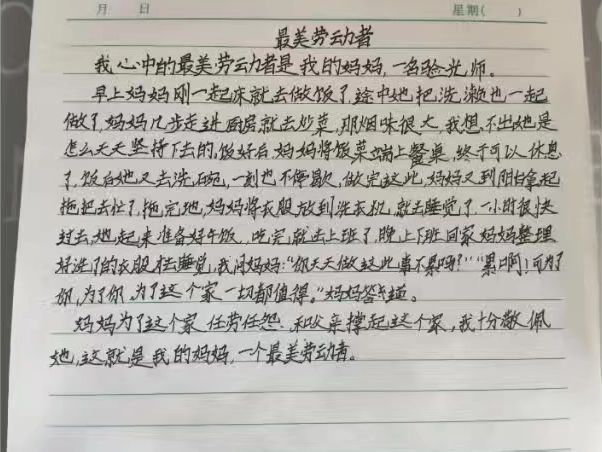 月 日 星期( )
最美劳动者
我心中的最美劳动者是我的妈妈,一名验光师。
早上妈妈刚一起床就去做饭了,途中她把洗漱也一起
做了,妈妈几步走进厨房就去炒菜,那烟味很大,我想不出她是
怎么天天坚持下去的,饭好后,妈妈将饭菜端上餐桌,终于可以休息
了,饭后她又去洗碗,一刻也不停歇,做完这些,妈妈又到阳台拿起
拖把去忙了,拖完地,妈妈将衣服放到洗衣机,就去睡觉了,一小时很快
过去,她起来准备好午饭,吃完就去上班了,晚上下班回家妈妈整理
好洗了的衣服才去睡觉,我问妈妈:“你天天做这些事不累吗?”“累啊!可为了
你,为了你,为了这个家一切都值得。”妈妈答道。
妈妈为了这个家任劳任怨,和父亲撑起这个家,我十分敬佩
她,这就是我的妈妈,一个最美劳动者。